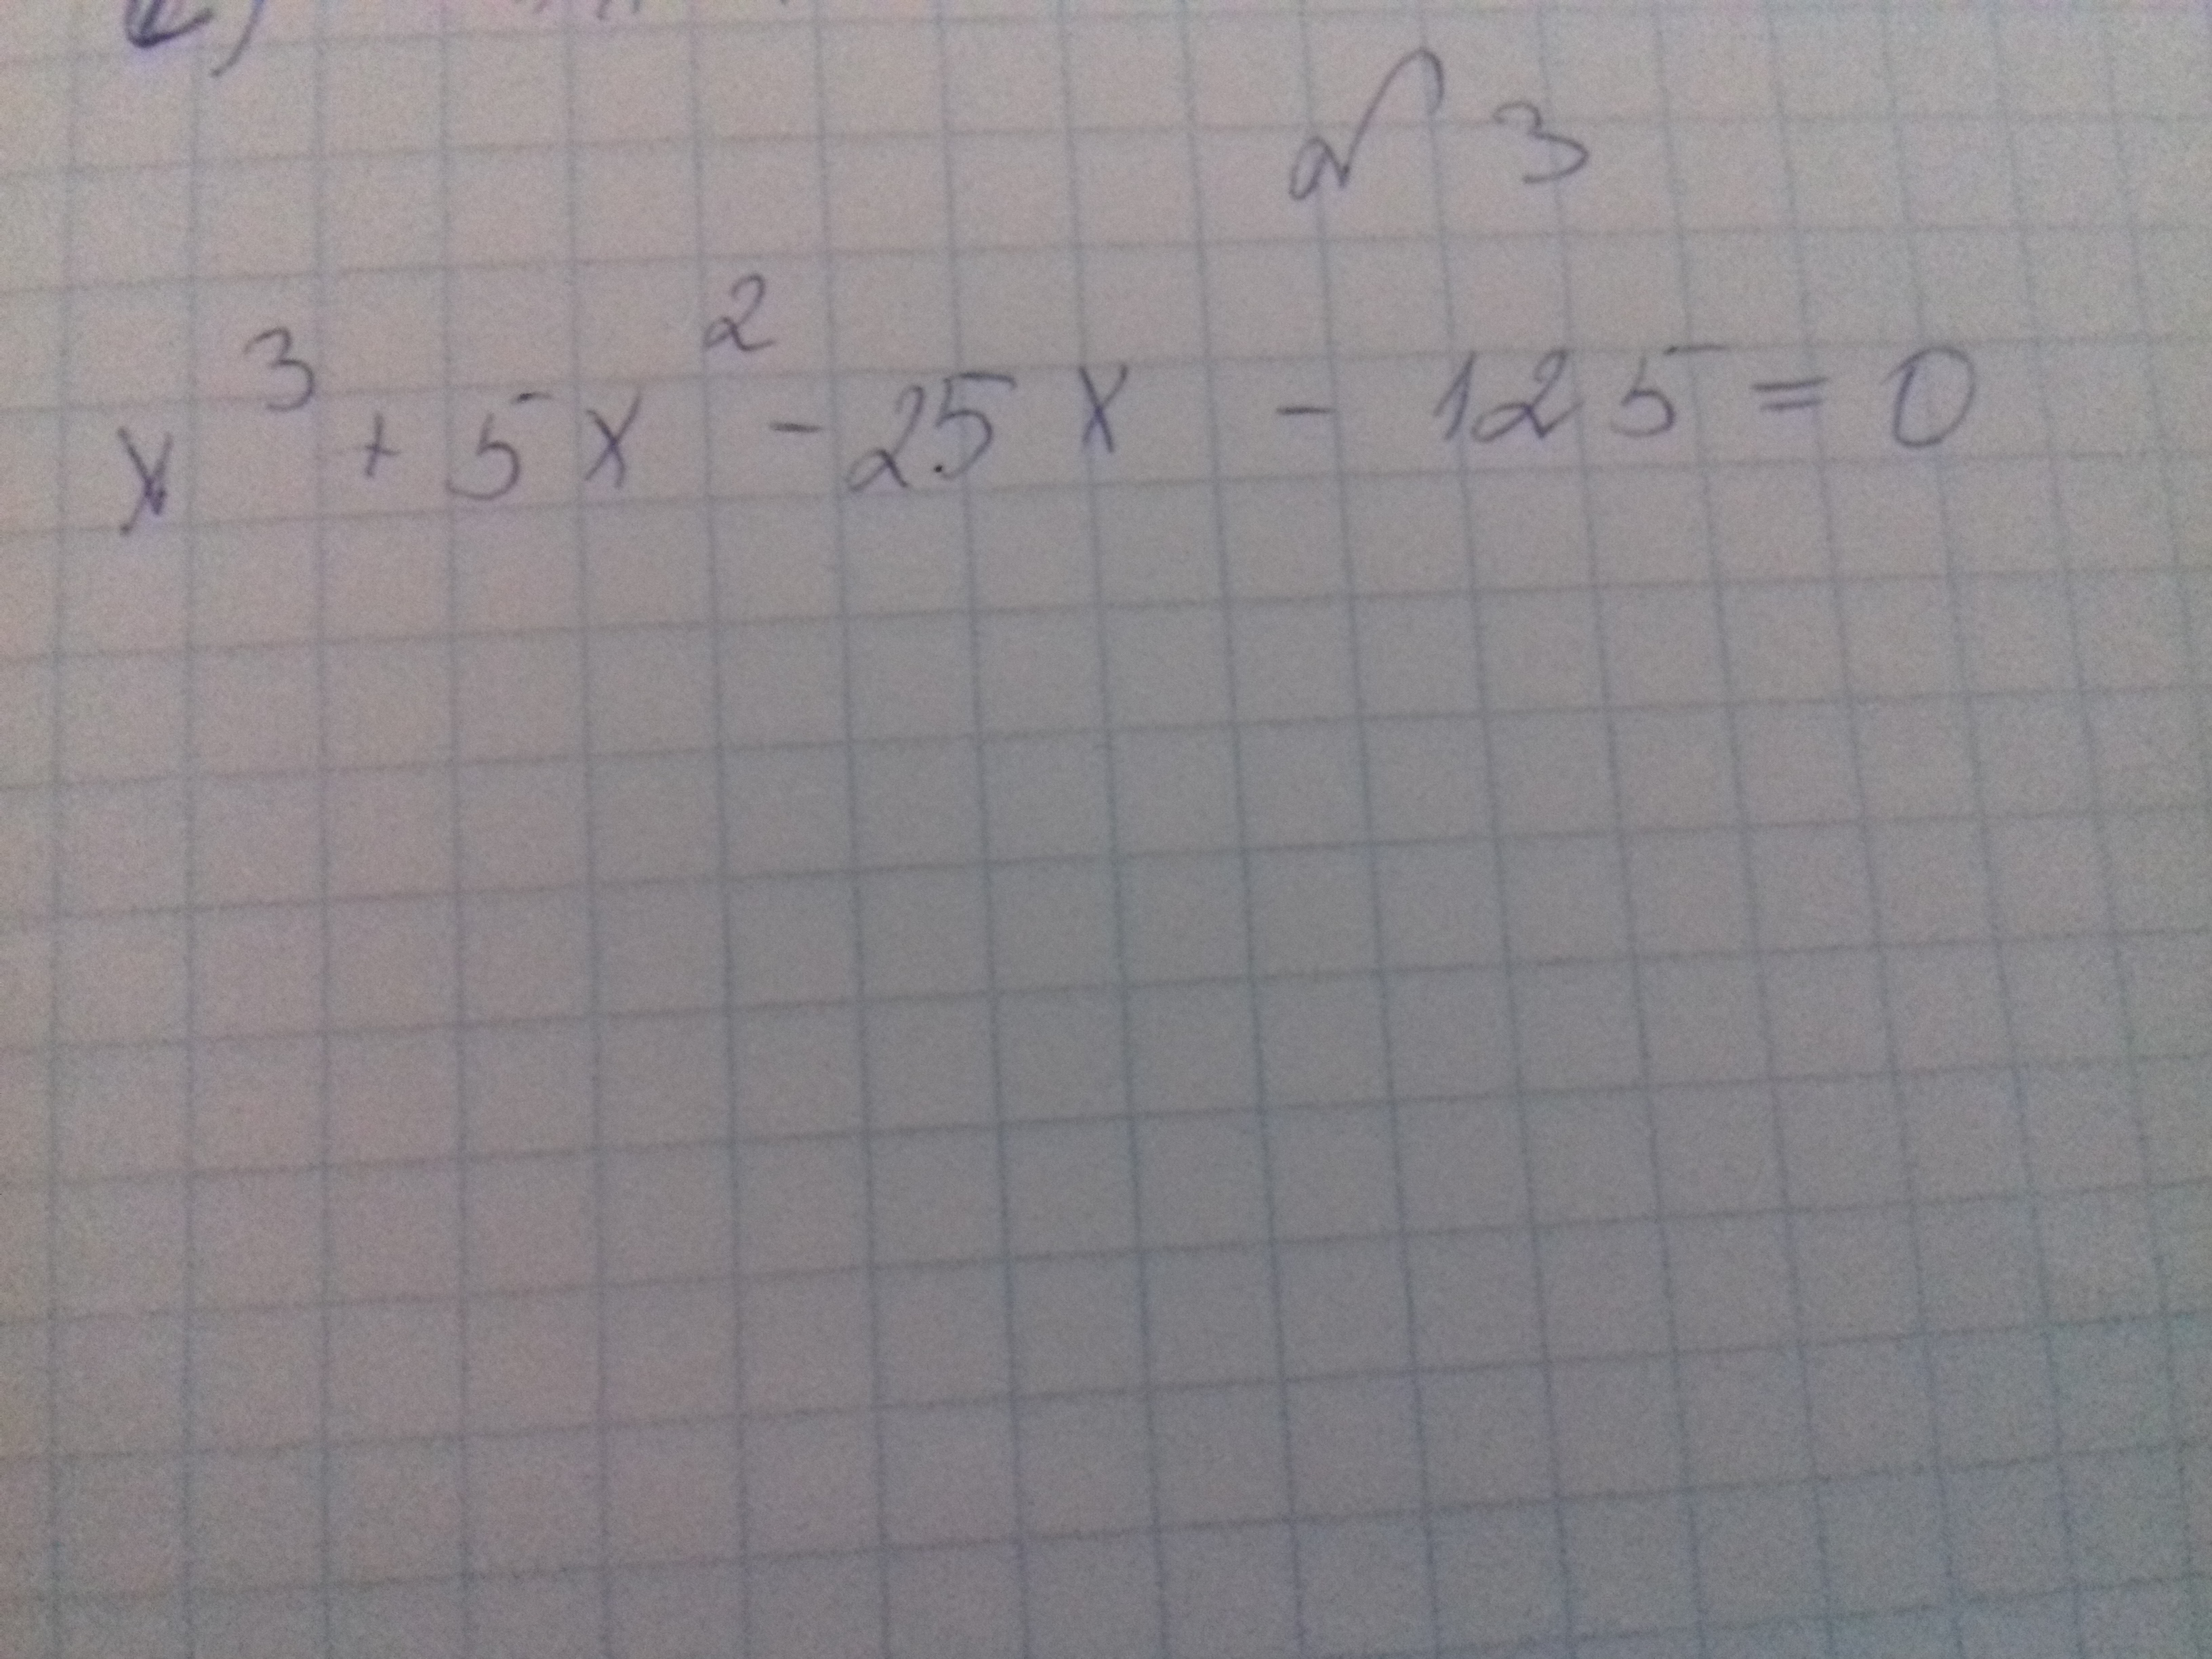 № 3
x³ + 5x² - 25x - 125 = 0